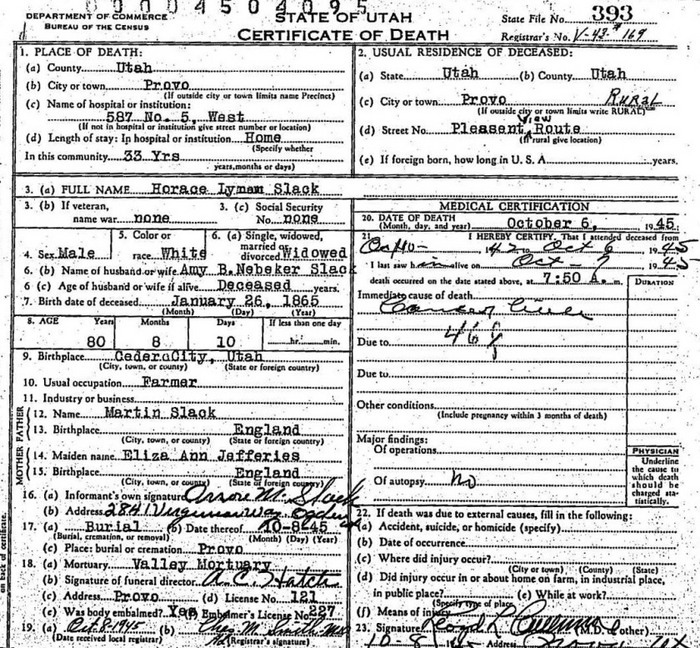 0 0 0 4 5 0 4 0 9 5
DEPARTMENT OF COMMERCE
BUREAU OF THE CENSUS
STATE OF UTAH
CERTIFICATE OF DEATH
State File No. 393
Registrar's No. V-43-#169
1. PLACE OF DEATH:
(a) County Utah
(b) City or town Provo
(If outside city or town limits name Precinct)
(c) Name of hospital or institution:
587 No. 5, West
(If not in hospital or institution give street number or location)
(d) Length of stay: In hospital or institution Home
(Specify whether
In this community 33 Yrs
years, months or days)
2. USUAL RESIDENCE OF DECEASED:
(a) State Utah (b) County Utah
(c) City or town Provo RURAL
(If outside city or town limits write RURAL)
(d) Street No. Pleasent View Route
(If rural give location)
(e) If foreign born, how long in U. S. A. years.
3. (a) FULL NAME Horace Lyman Slack
3. (b) If veteran, name war none
3. (c) Social Security No. none
4. Sex Male
5. Color or race White
6. (a) Single, widowed, married or divorced Widowed
6. (b) Name of husband or wife Amy B. Nebeker Slack
6. (c) Age of husband or wife if alive Deceased years.
7. Birth date of deceased January 26, 1865
(Month) (Day) (Year)
8. AGE Years Months Days If less than one day
80 8 10 hr. min.
9. Birthplace CedaroCity, Utah
(City, town, or county) (State or foreign country)
10. Usual occupation Farmer
11. Industry or business
FATHER
12. Name Martin Slack
13. Birthplace England
(City, town, or county) (State or foreign country)
MOTHER
14. Maiden name Eliza Ann Jefferies
15. Birthplace England
(City, town, or county) (State or foreign country)
16. (a) Informant's own signature M. Slack
(b) Address 2841 Virginia Way Ogden
17. (a) Burial (b) Date thereof 10-8-45
(Burial, cremation, or removal) (Month) (Day) (Year)
(c) Place: burial or cremation Provo
18. (a) Mortuary Valley Mortuary
(b) Signature of funeral director A. C. Hatch
(c) Address Provo (d) License No. 121
(e) Was body embalmed? Yes (f) Embalmer's License No. 227
19. (a) Oct. 8-1945 (b) Chas M. Smith M.D.
(Date received local registrar) (Registrar's signature)
on back of certificate.
MEDICAL CERTIFICATION
20. DATE OF DEATH
(Month, day, and year) October 6, 1945
21. I HEREBY CERTIFY, That I attended deceased from
42 to Oct 6 1945
I last saw him alive on Oct 1945
death occurred on the date stated above, at 7:50 A. m.
DURATION
Immediate cause of death
Cancer Liver
Due to 46
Due to
Other conditions
(Include pregnancy within 3 months of death)
Major findings:
Of operations
Of autopsy no
PHYSICIAN
Underline
the cause to
which death
should be
charged sta-
tistically.
22. If death was due to external causes, fill in the following:
(a) Accident, suicide, or homicide (specify)
(b) Date of occurrence
(c) Where did injury occur?
(City or town) (County) (State)
(d) Did injury occur in or about home on farm, in industrial place,
in public place? (e) While at work?
(Specify type of place)
(f) Means of injury
23. Signature Lloyd L. Cullimore (M.D. or other)
10-8 1945 Address Provo Ut